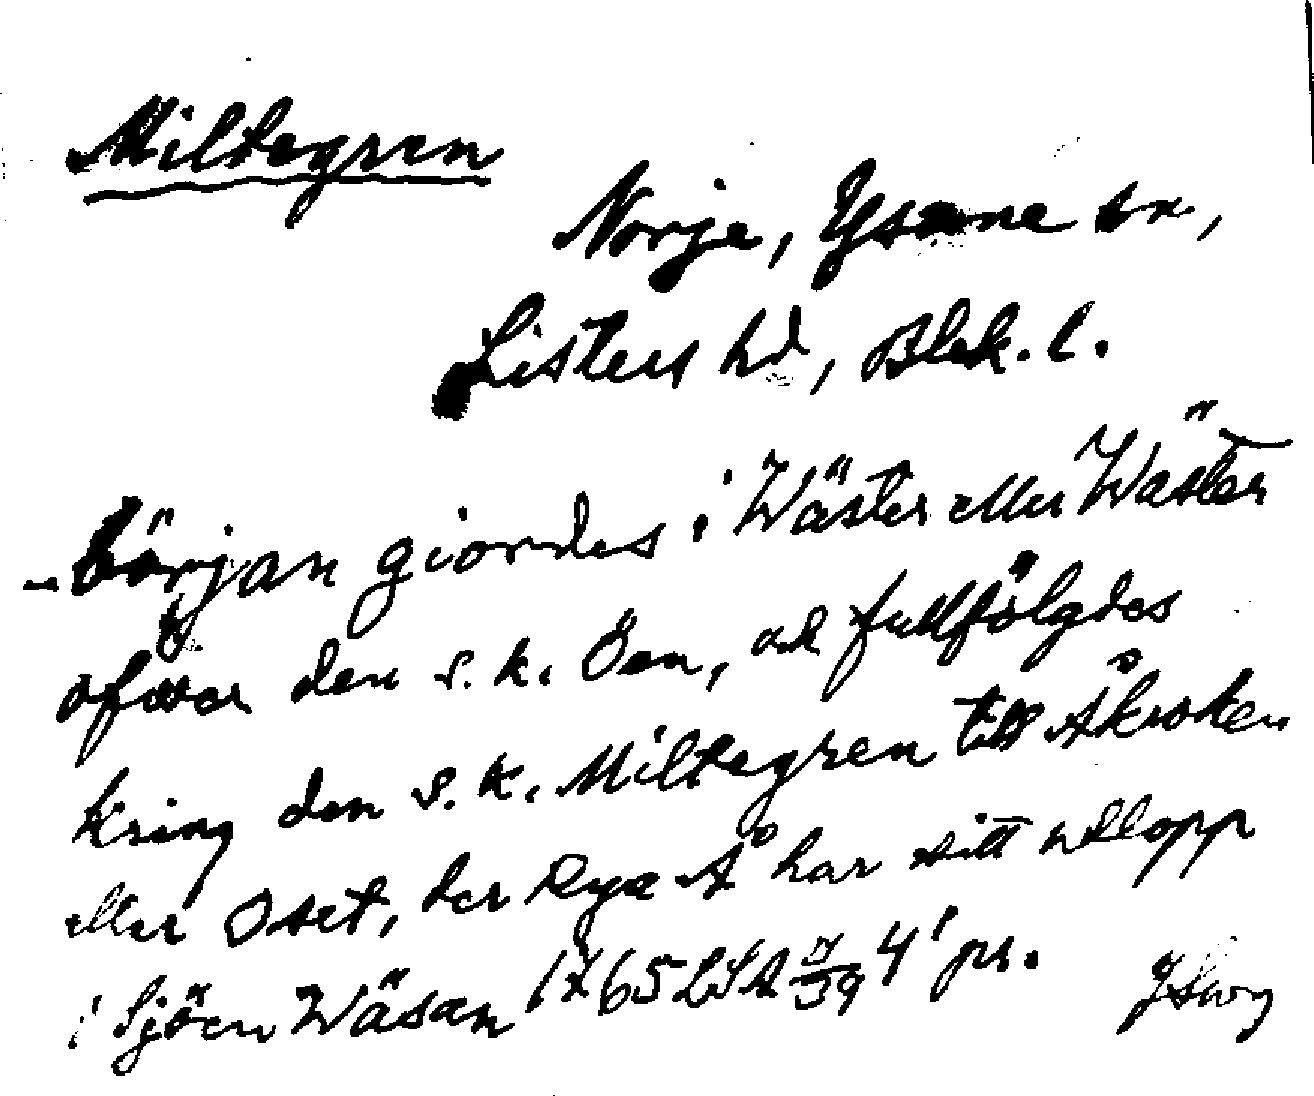 Miltegren
Norje, Ysane sn,
Listers hd, Blek. l.
- Början giordes i Wäster eller Wäster
ofwar den s. k. Öen, ock fullfölgdes
kring den s. k. Miltegren till Åkroken
eller Oset, der Rya Å har sitt utlopp
i Sjöen Wäsan 1765 LSA 4' pr.